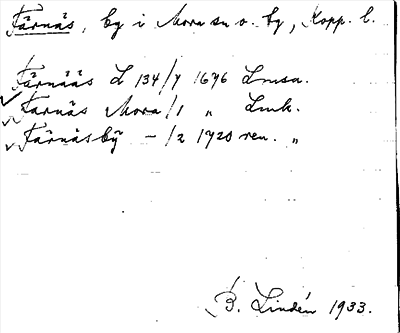 Färnäs, by i Mora sn o. by, Kopp. l.
Färnääs L 134/7 1676 Lmsa.
Färnäs Mora/1 „ Lmk.
Färnäsbÿ – /2 1720 ren. „
B. Lindén 1933.